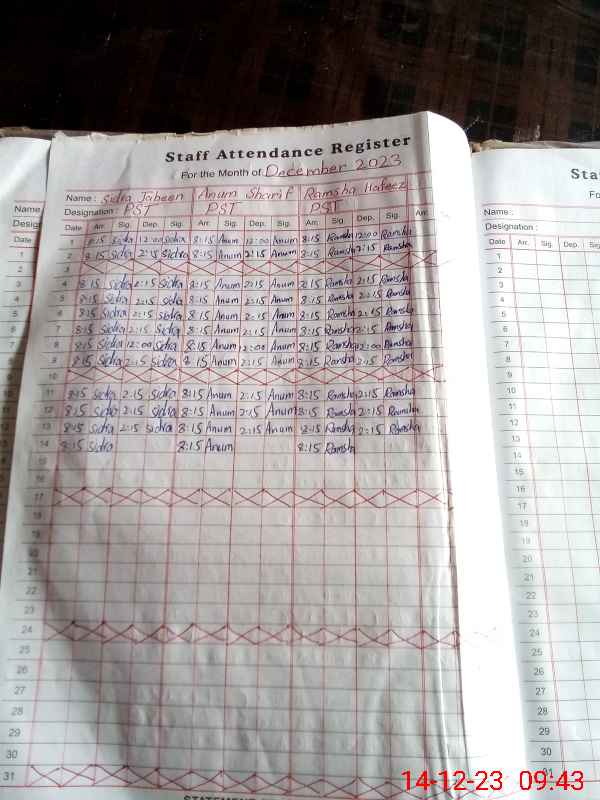 Staff Attendance Register
For the Month of December 2023
Name : Sidra Jabeen Anum Sharif Ramsha Hafeez
Designation : PST PST PST
Date Arr. Sig. Dep. Sig. Arr. Sig. Dep. Sig. Arr. Sig. Dep. Sig. Arr.
1 8:15 Sidra 12:00 Sidra 8:15 Anum 12:00 Anum 8:15 Ramsha 12:00 Ramsha
2 8:15 Sidra 2:15 Sidra 8:15 Anum 2:15 Anum 8:15 Ramsha 2:15 Ramsha
3
4 8:15 Sidra 2:15 Sidra 8:15 Anum 2:15 Anum 8:15 Ramsha 2:15 Ramsha
5 8:15 Sidra 2:15 Sidra 8:15 Anum 2:15 Anum 8:15 Ramsha 2:15 Ramsha
6 8:15 Sidra 2:15 Sidra 8:15 Anum 2:15 Anum 8:15 Ramsha 2:15 Ramsha
7 8:15 Sidra 2:15 Sidra 8:15 Anum 2:15 Anum 8:15 Ramsha 2:15 Ramsha
8 8:15 Sidra 12:00 Sidra 8:15 Anum 12:00 Anum 8:15 Ramsha 12:00 Ramsha
9 8:15 Sidra 2:15 Sidra 8:15 Anum 2:15 Anum 8:15 Ramsha 2:15 Ramsha
10
11 8:15 Sidra 2:15 Sidra 8:15 Anum 2:15 Anum 8:15 Ramsha 2:15 Ramsha
12 8:15 Sidra 2:15 Sidra 8:15 Anum 2:15 Anum 8:15 Ramsha 2:15 Ramsha
13 8:15 Sidra 2:15 Sidra 8:15 Anum 2:15 Anum 8:15 Ramsha 2:15 Ramsha
14 8:15 Sidra 8:15 Anum 8:15 Ramsha
15
16
17
18
19
20
21
22
23
24
25
26
27
28
29
30
31
Name
Desig
Date
1
2
3
4
5
6
7
8
9
Sta
Fo
Name :
Designation :
Date Arr. Sig. Dep. Sig.
1
2
3
4
5
6
7
8
9
10
11
12
13
14
15
16
17
18
19
20
21
22
23
24
25
26
27
28
29
30
31
14-12-23 09:43